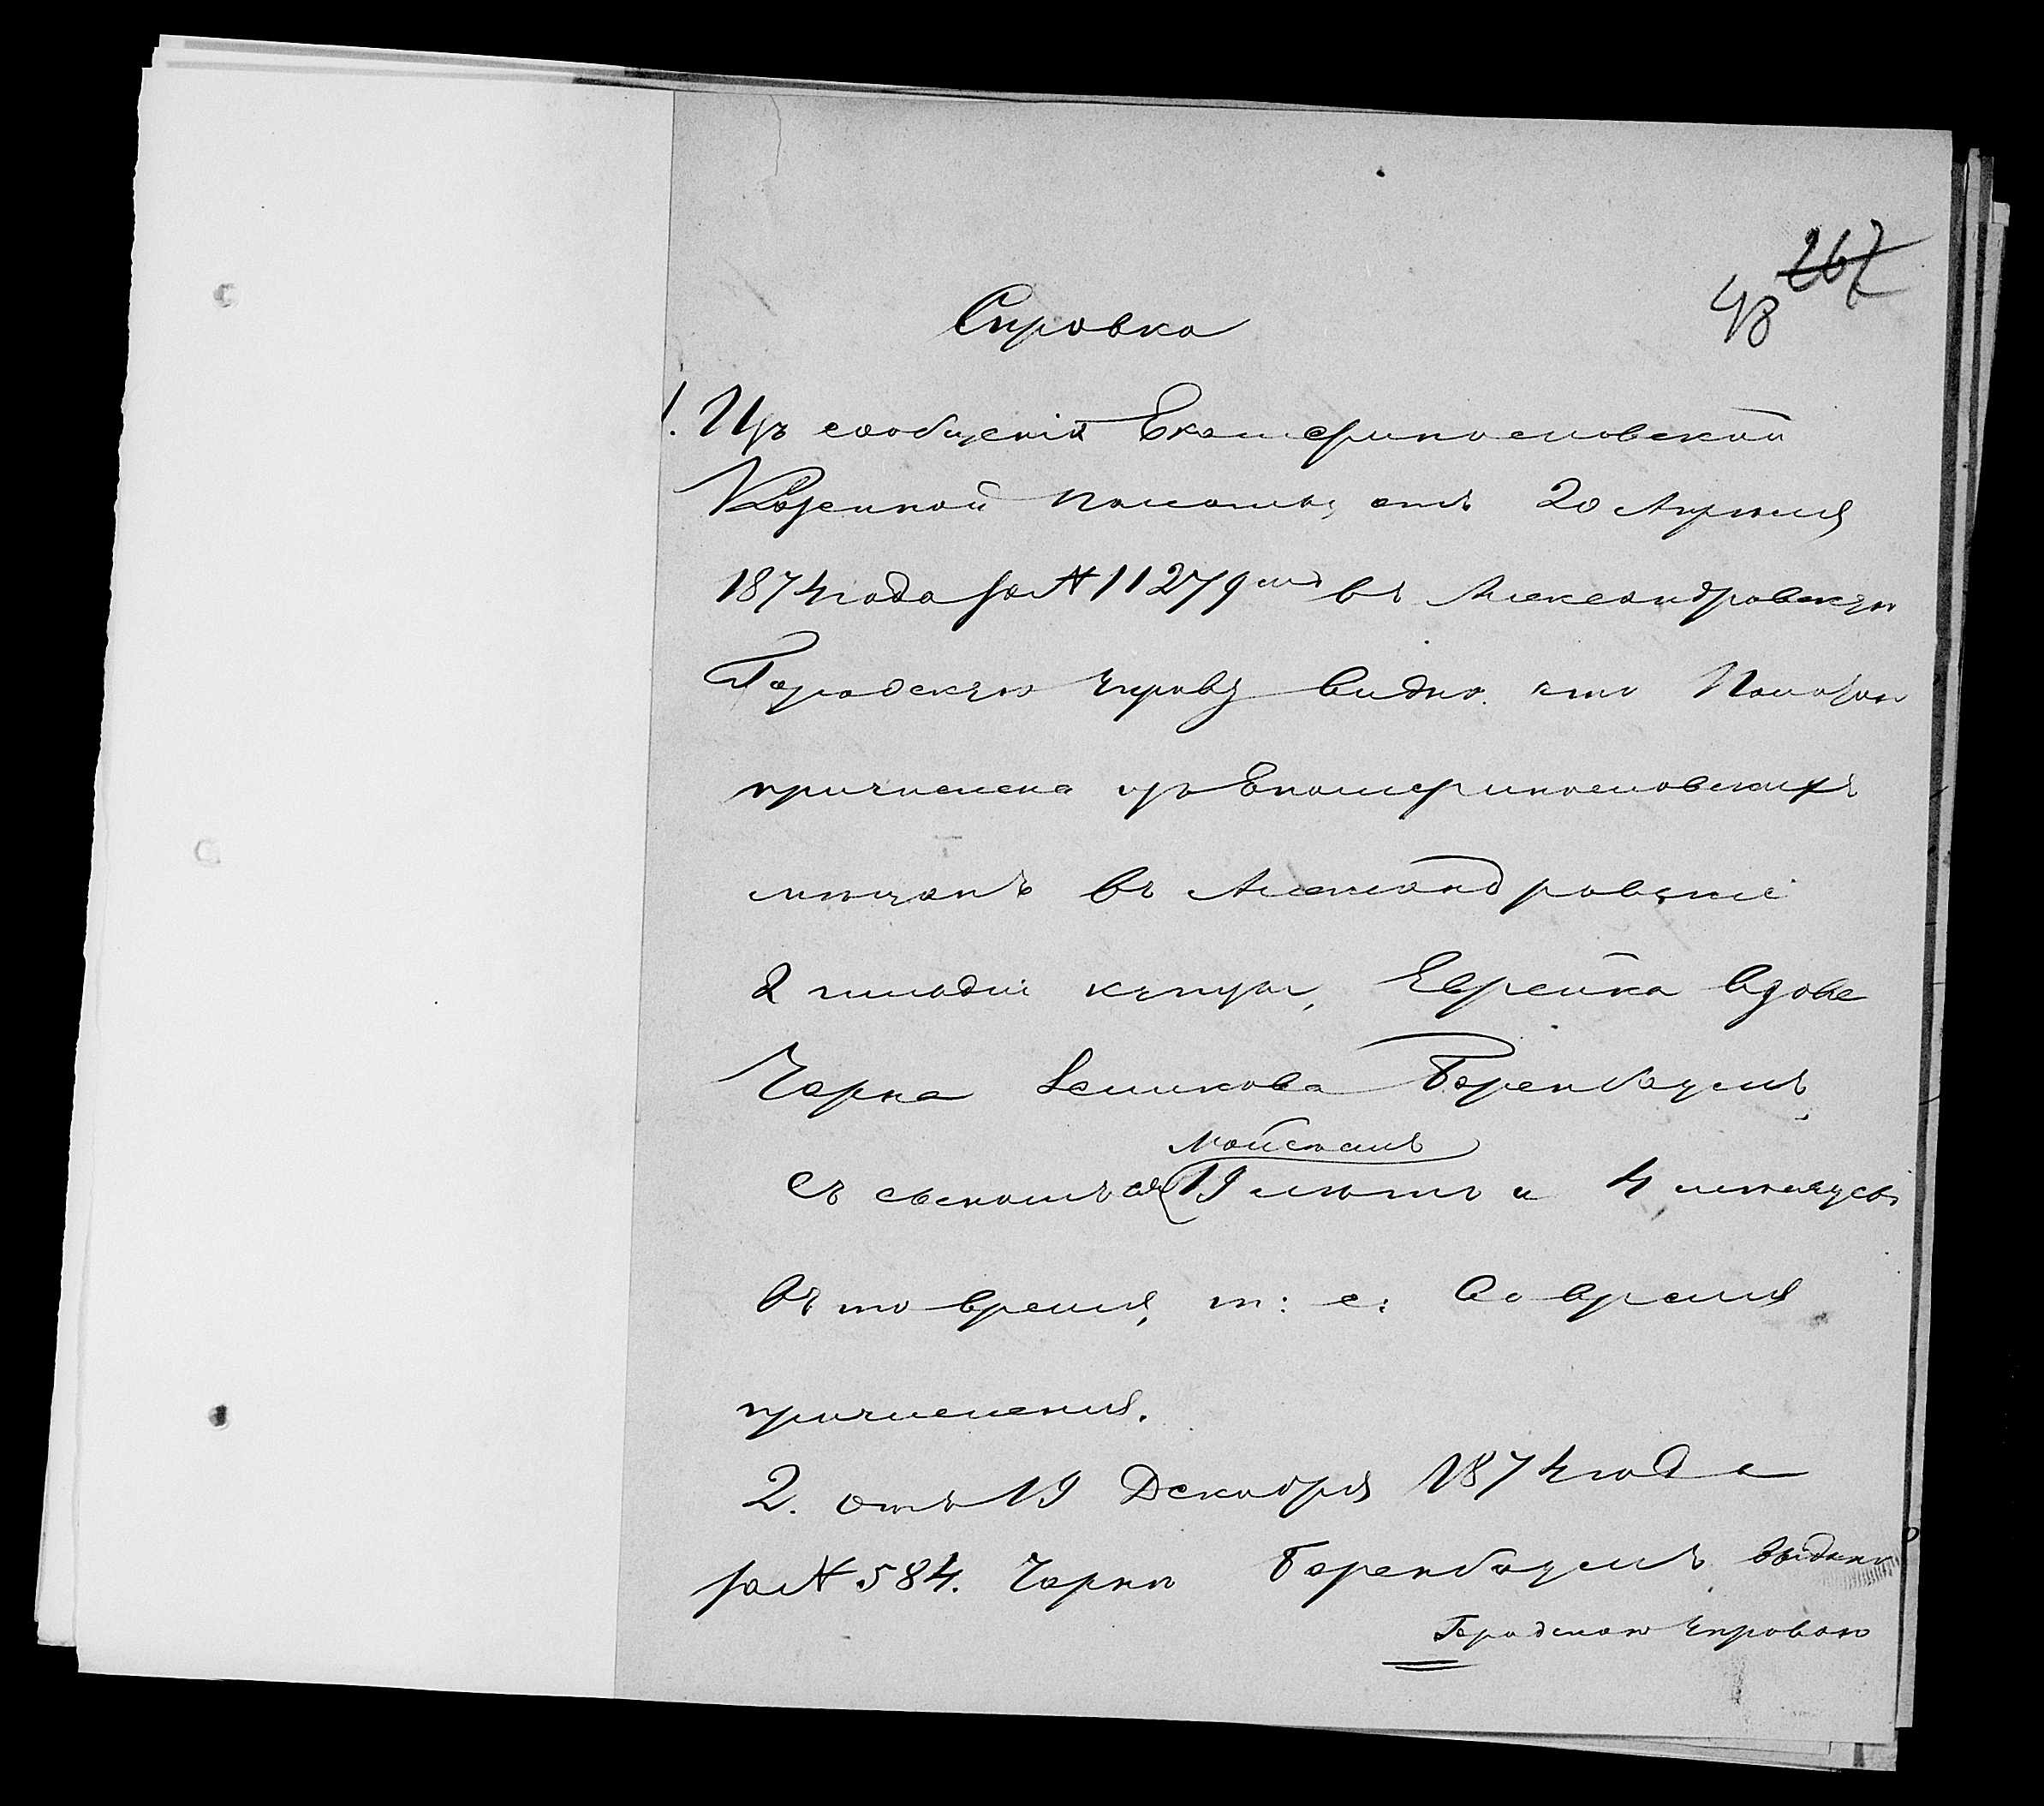 267
48
Справка
1. Изъ сообщенія Екатеринославской
Казенной Палаты, отъ 20 Апрѣля
1874 года за № 11279мъ въ Александровскую
Городскую Управу видно, что Палатою
причислена изъ Екатеринославскихъ
мѣщанъ въ Александровскіе
2 гильдіи купцы, Еврейка вдова
Чарна Береңбаумъ
Мойсеемъ
съ сыномъ 19 лѣтъ и 4 мѣсяцевъ
въ то время, т: е: во время
причисленія.
2. отъ 19 Декабря 1874 года
за № 584. Чарнѣ Беренбаумъ выдано
Городскою Управою